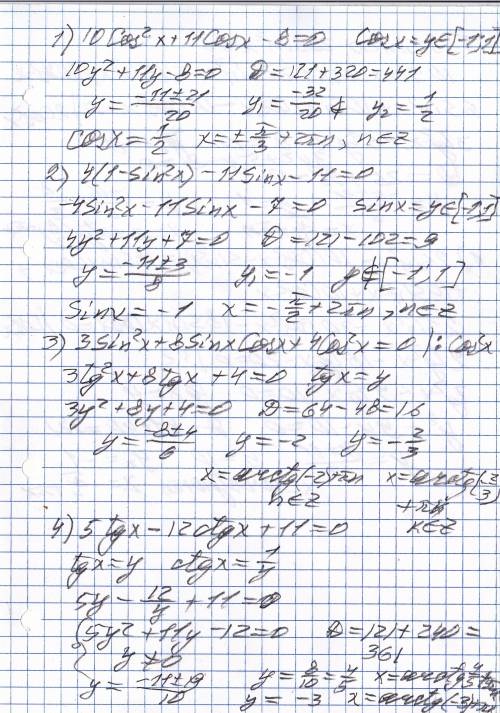 1) 10Cos²x+11Cosx-8=0 Cosx=y∈[-1;1]
10y²+11y-8=0 D=121+320=441
y=(-11±21)/20 y₁=-32/20 ∉ y₂=1/2
Cosx=1/2 x=±π/3+2πn, n∈Z
2) 4(1-Sin²x)-11Sinx-11=0
-4Sin²x-11Sinx-7=0 Sinx=y∈[-1;1]
4y²+11y+7=0 D=121-102=9
y=(-11±3)/8 y₁=-1 y∉[-1;1]
Sinx=-1 x=-π/2+2πn, n∈Z
3) 3Sin²x+8SinxCosx+4Cos²x=0 |:Cos²x
3tg²x+8tgx+4=0 tgx=y
3y²+8y+4=0 D=64-48=16
y=(-8±4)/6 y=-2 y=-2/3
x=arctg(-2)+πn x=arctg(-2/3)
n∈Z +πk
k∈Z
4) 5tgx-12ctgx+11=0
tgx=y ctgx=1/y
5y-12/y+11=0
{5y²+11y-12=0 D=121+240=
y≠0 361
y=(-11±19)/10 y=8/10=4/5 x=arctg 4/5+πn
y=-3 x=arctg(-3)+πn